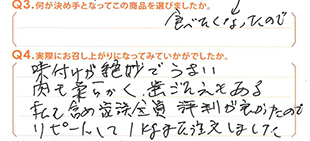 Q3.何が決め手となってこの商品を選びましたか。
食べたくなったので
Q4.実際にお召し上がりになってみていかがでしたか。
味付けが絶妙でうまい
肉も柔らかく、歯ごたえもある
私も含め家族全員 評判が良かったので
リピートして1kgまた注文しました